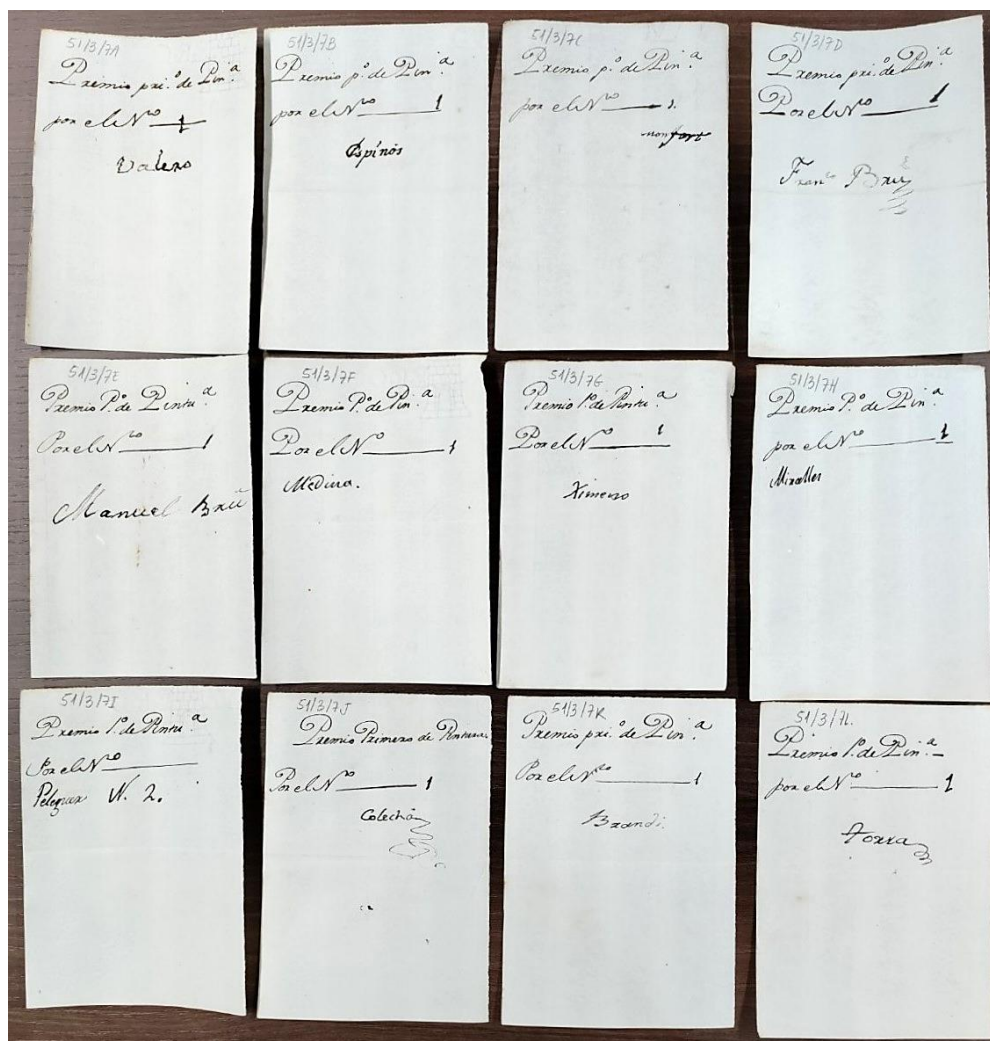 51/3/7A
Premio pri.º de Pin.ª
por el Nro 1
Valero
51/3/7B
Premio p.º de Pin.ª
por el Nro 1
Espinós
51/3/7C
Premio p.º de Pin.ª
por el Nro 1.
monfort
51/3/7D
Premio pri.º de Pin.ª
Por el Nro 1
Franco Brú
51/3/7E
Premio P.º de Pintu.ª
Por el Nro 1
Manuel Brú
51/3/7F
Premio P.º de Pin.ª
Por el Nro 1
Medina.
51/3/7G
Premio P.º de Pintu.ª
Por el Nro 1
Ximeno
51/3/7H
Premio P.º de Pin.ª
por el Nro 1
Miralles
51/3/7I
Premio P.º de Pintu.ª
Por el Nro
Peleguer N. 2.
51/3/7J
Premio Primero de Pintura
Por el Nro 1
Colechá
51/3/7K
Premio pri.º de Pin.ª
Por el Nro 1
Brandi.
51/3/7L.
Premio P.º de Pin.ª
por el Nro 1
torra